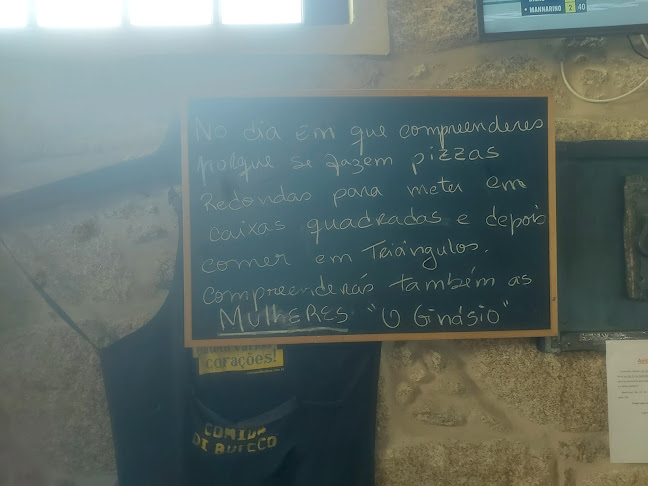 • MANNARINO 2 40
No dia em que compreenderes
porque se fazem pizzas
Redondas para meter em
caixas quadradas e depois
comer em Triângulos.
compreenderás também as
MULHERES "O Ginásio"
corações!
COMIDA
DI BUTECO